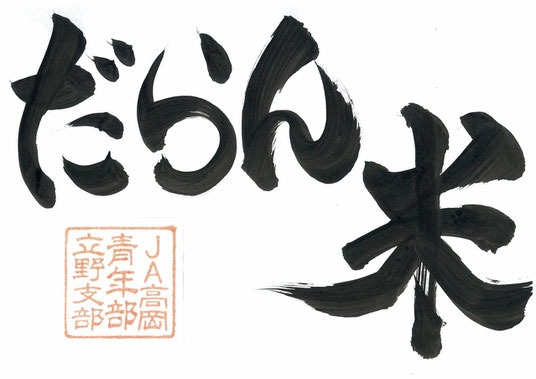 だらん米
JA高岡
青年部
立野支部